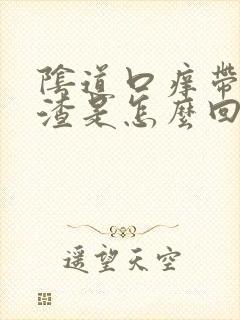 陰道口痒帶
渣是怎麼回
遥望天空